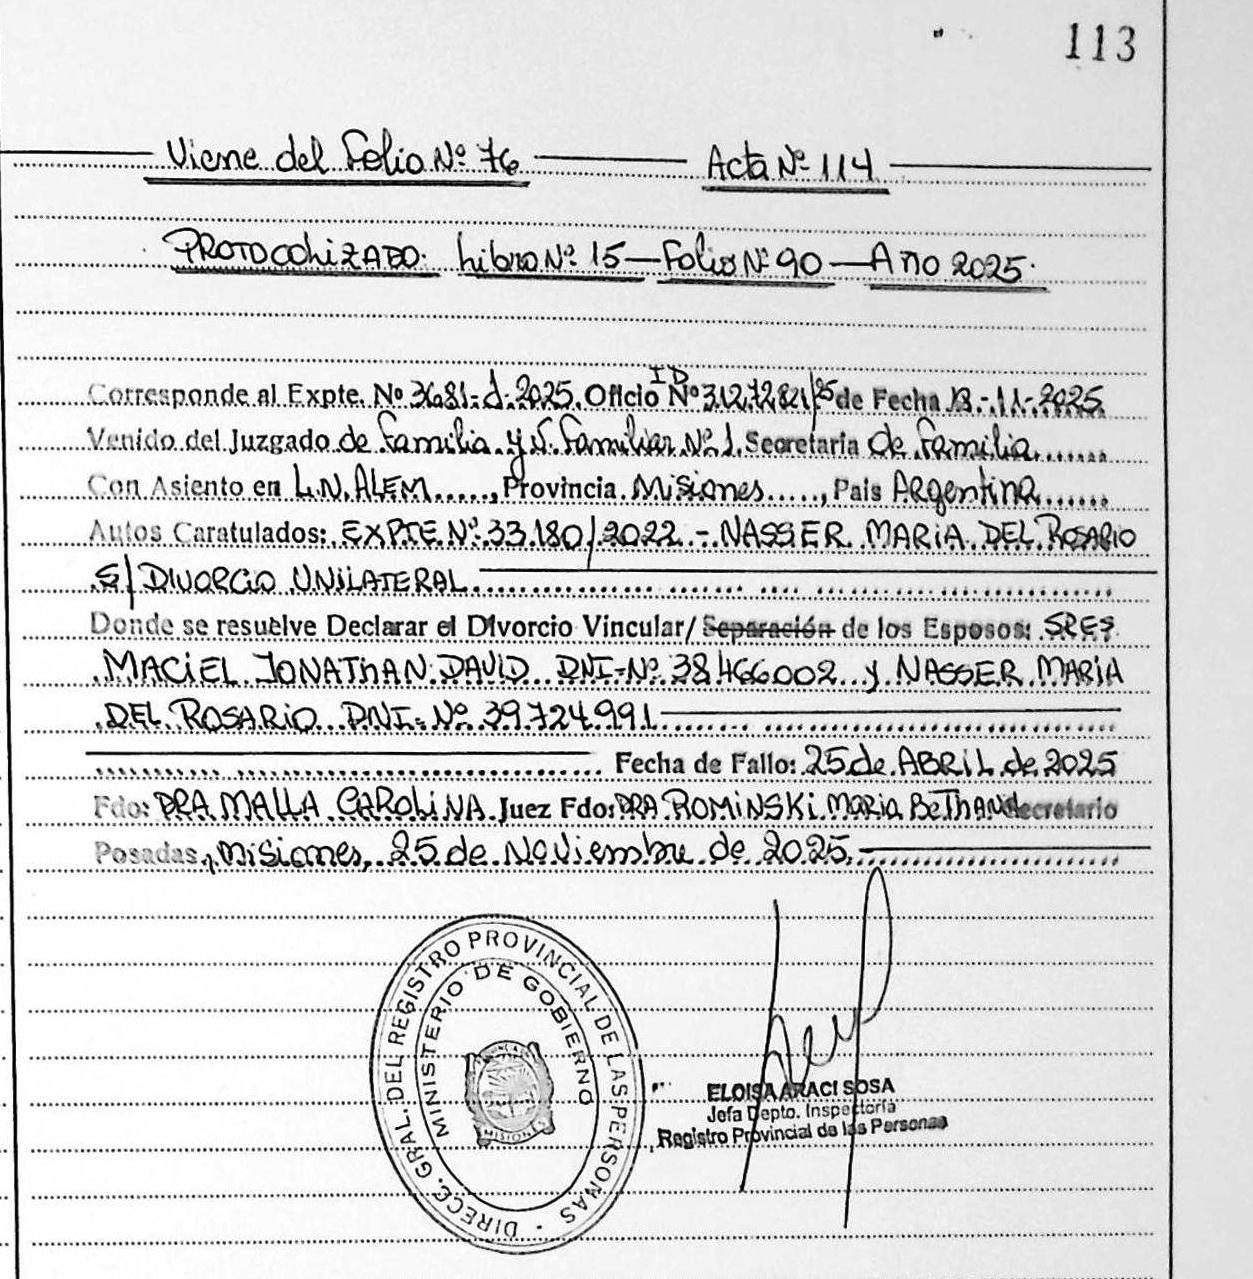 113
Viene del Folio Nº 76 Acta Nº 114
PROTOCOLIZADO: Libro Nº 15 - Folio Nº 90 - Año 2025.
Corresponde al Expte. Nº 3681-d-2025. Oficio ID Nº 31272821/25 de Fecha 13-11-2025
Venido del Juzgado de Familia y V. Familiar Nº 1. Secretaria de Familia
Con Asiento en L.N. ALEM, Provincia Misiones, Pais Argentina
Autos Caratulados: EXPTE Nº 33.180/2022 - NASSER MARIA DEL ROSARIO
S/ DIVORCIO UNILATERAL
Donde se resuelve Declarar el Divorcio Vincular/ Separación de los Esposos: SRES
MACIEL JONATHAN DAVID DNI-Nº 38466002 y NASSER MARIA
DEL ROSARIO DNI-Nº 39.724.991
Fecha de Fallo: 25 de ABRIL de 2025
Fdo: DRA MALLA CAROLINA Juez Fdo: DRA ROMINSKI MARIA BETHAN Secretario
Posadas, Misiones, 25 de Noviembre de 2025.
DIRECC. GRAL. DEL REGISTRO PROVINCIAL DE LAS PERSONAS
MINISTERIO DE GOBIERNO
PROVINCIA DE
MISIONES
ELOISA ARACI SOSA
Jefa Depto. Inspectoría
Registro Provincial de las Personas